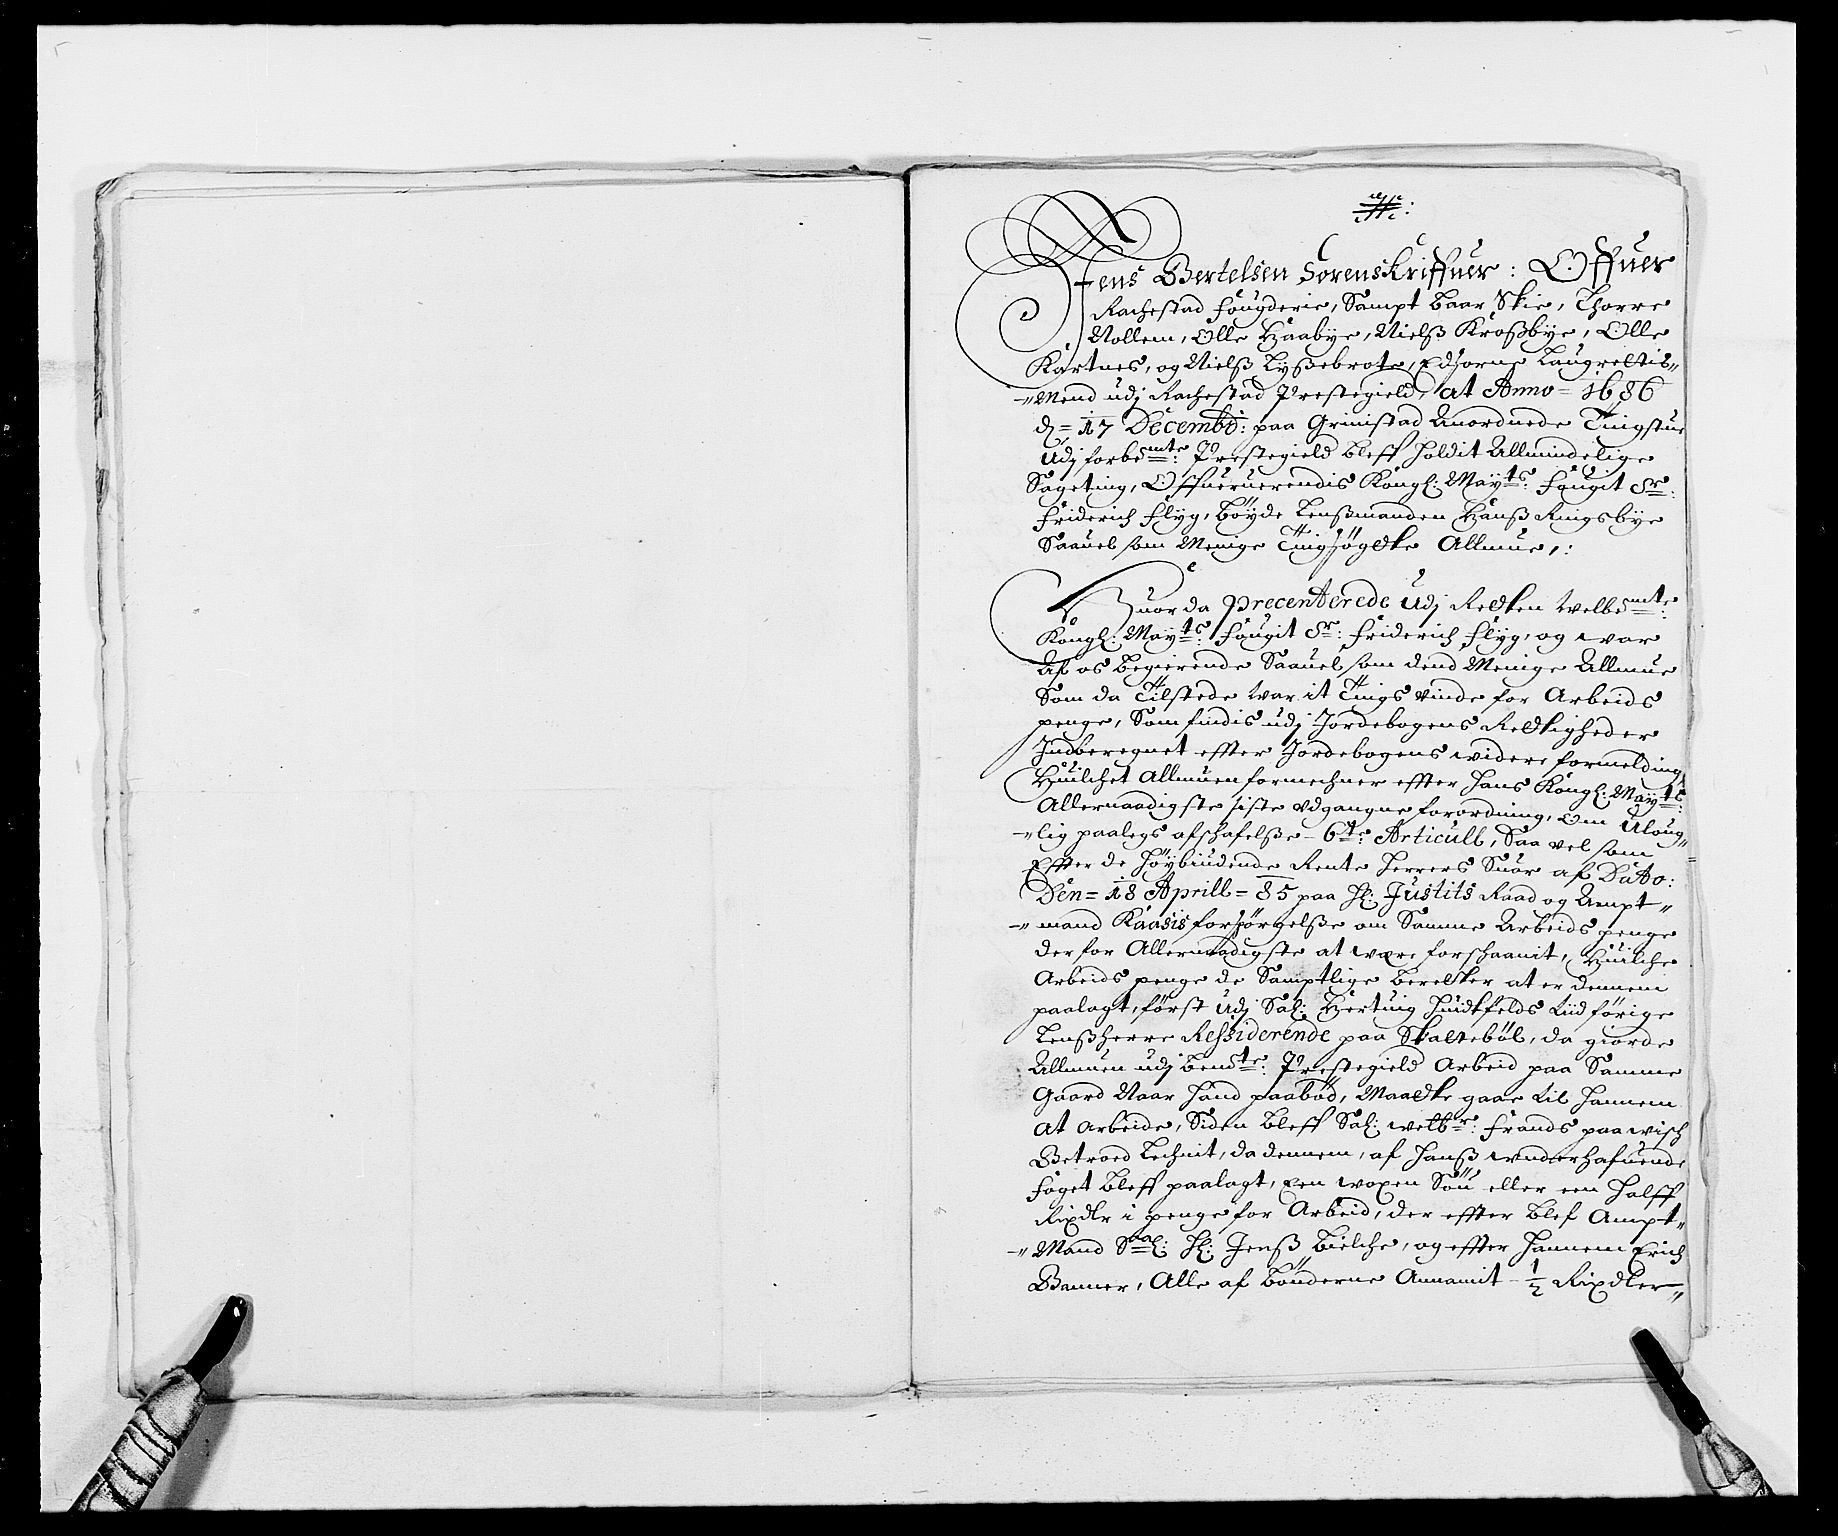 Jens Bertelsen Sorenskriffuer: Offuer
Rachestad Fougderie, Sampt Baar Skie, Thorre
Mollem, Olle Haabye, Nielß Kroßbye, Olle
Kartnes, og Nielß Lyßebrote, Edsorne Laugrettis„
-„Mend udj Rachestad Prestegield, at Anno = 1686
d = 17 Decembr: paa Grimstad Anordnede Tingstue
Udj forbemte: Prestegield bleff holdit Allmindelige
Sageting, Offueruerendis Kongl: Mayts: Fougit Sr:
Friderich Flyg, Böyde Lenßmanden Hanß Ringsbye
Saauel som Menige Tingsögete Allmue,:
Huor da Precenterede Udj Retten Welbemte:
Kongl: Mayts: Fougit Sr: Friderich Flyg, og war
Af os begierende Saauel som dend Menige Allmue
Som da Tilstede war it Tings Vinde for Arbeids
penge, Som findis udj Jordebogens Rettigheder
Indberegnet effter Jordebogens widere formelding
Huilchet Allmuen formeehner effter Hans Kongl: Mayts:
Allernaadigste siste udgangne forordning, Om Uloug„
-„lig paalegs afschafelße - 6te: Articull, Saa vel som
Effter de höybiudende Rente Herrers Suar af Dato:
Den = 18 Aprill = 85 paa Hl: Justits Raad og Ampt„
-„mand Kaasis forspörgelße om Samme Arbeids penge
derfor Allernaadigste at were forschaanit, Huilche
Arbeids penge de Samptlige beretter at er dennem
paalagt, först Udj Sal: Hertuig Huidtfelds Tiid förige
Lenßherre Ressiderende paa Skalteböl, da giorde
Allmuen udj bemte: Prestegield Arbeid paa Samme
Gaard Naar hand paabød, Maatte gaae til hannem
At Arbeide, Siden bleff Sal: welbr: Frands paawisch
Betroed Lehnit, da dennem, af Hanß underhafuende
Foget bleff paalagt, Een woxen Söu eller een halff
Rixdlr i penge for Arbeid, der effter blef Ampt„
-„Mand Saal: Hl: Jenß Bielche, og effter hannem Erich
Banner, Alle af Bönderne Annamit - 1/2 Rixdler„